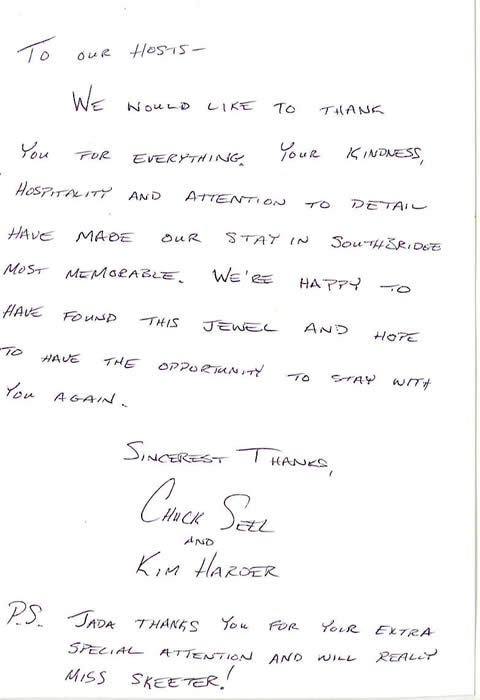 To our Hosts—
We would like to thank
you for everything. Your kindness,
hospitality and attention to detail
have made our stay in Southbridge
most memorable. We're happy to
have found this jewel and hope
to have the opportunity to stay with
you again.
Sincerest Thanks,
Chuck Sell
and
Kim Harder
P.S. Jada thanks you for your extra
special attention and will really
miss Skeeter!